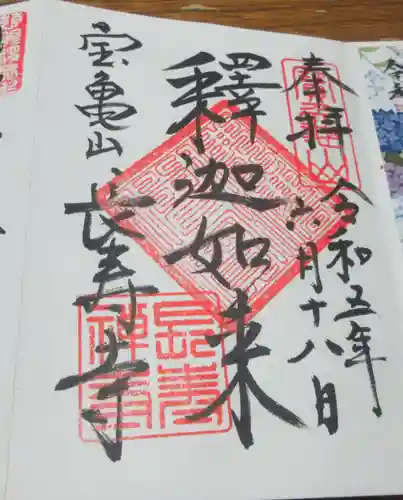 奉拝
令和五年
六月十八日
釋迦如来
宝亀山
長寿寺
長寿
禅寺